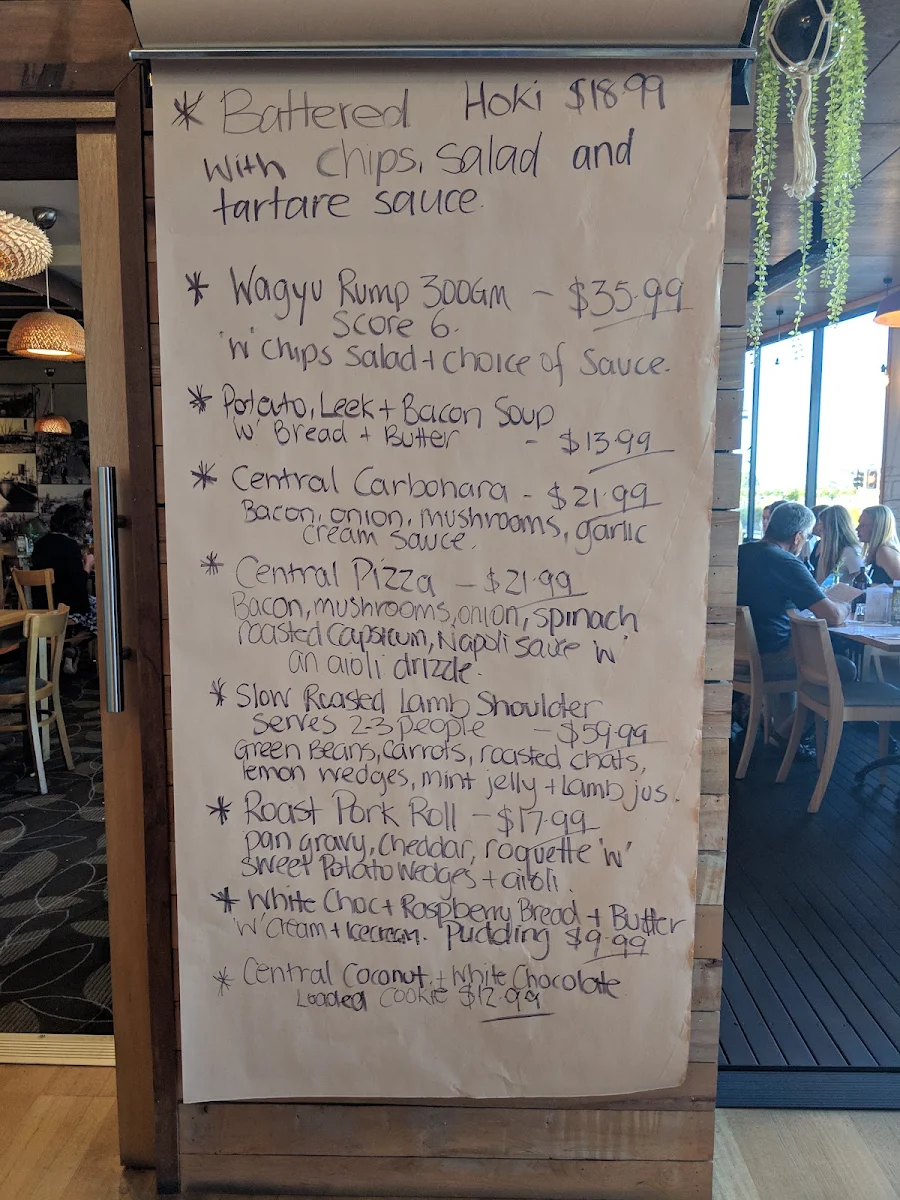 * Battered Hoki $18.99
with chips, salad and
tartare sauce.
* Wagyu Rump 300GM - $35.99
Score 6.
'W' chips salad + choice of sauce.
* Potato, Leek + Bacon Soup
W' Bread + Butter - $13.99
* Central Carbonara - $21.99
Bacon, onion, mushrooms, garlic
cream sauce.
* Central Pizza - $21.99
Bacon, mushrooms, onion, spinach
roasted capsicum, Napoli sauce 'w'
an aioli drizzle.
* Slow Roasted Lamb Shoulder
Serves 2-3 people - $59.99
Green Beans, Carrots, roasted chats,
lemon wedges, mint jelly + Lamb jus.
* Roast Pork Roll - $17.99
pan gravy, Cheddar, roquette 'w'
Sweet Potato Wedges + aioli.
* White Choc + Raspberry Bread + Butter
'W' Cream + Icecream. Pudding $9.99
* Central Coconut + White Chocolate
Loaded Cookie $12.99